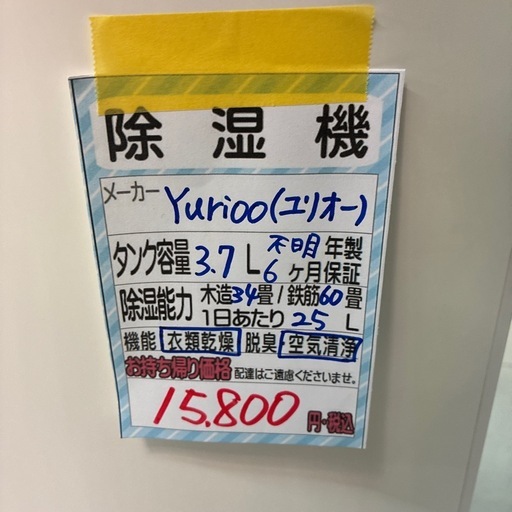 除湿機
メーカー Yurioo(ユリオー)
タンク容量 3.7 L 不明年製 6ヶ月保証
除湿能力 木造34畳/鉄筋60畳
1日あたり 25 L
機能 衣類乾燥 脱臭 空気清浄
お持ち帰り価格 配達はご遠慮くださいませ。
15.800 円・税込